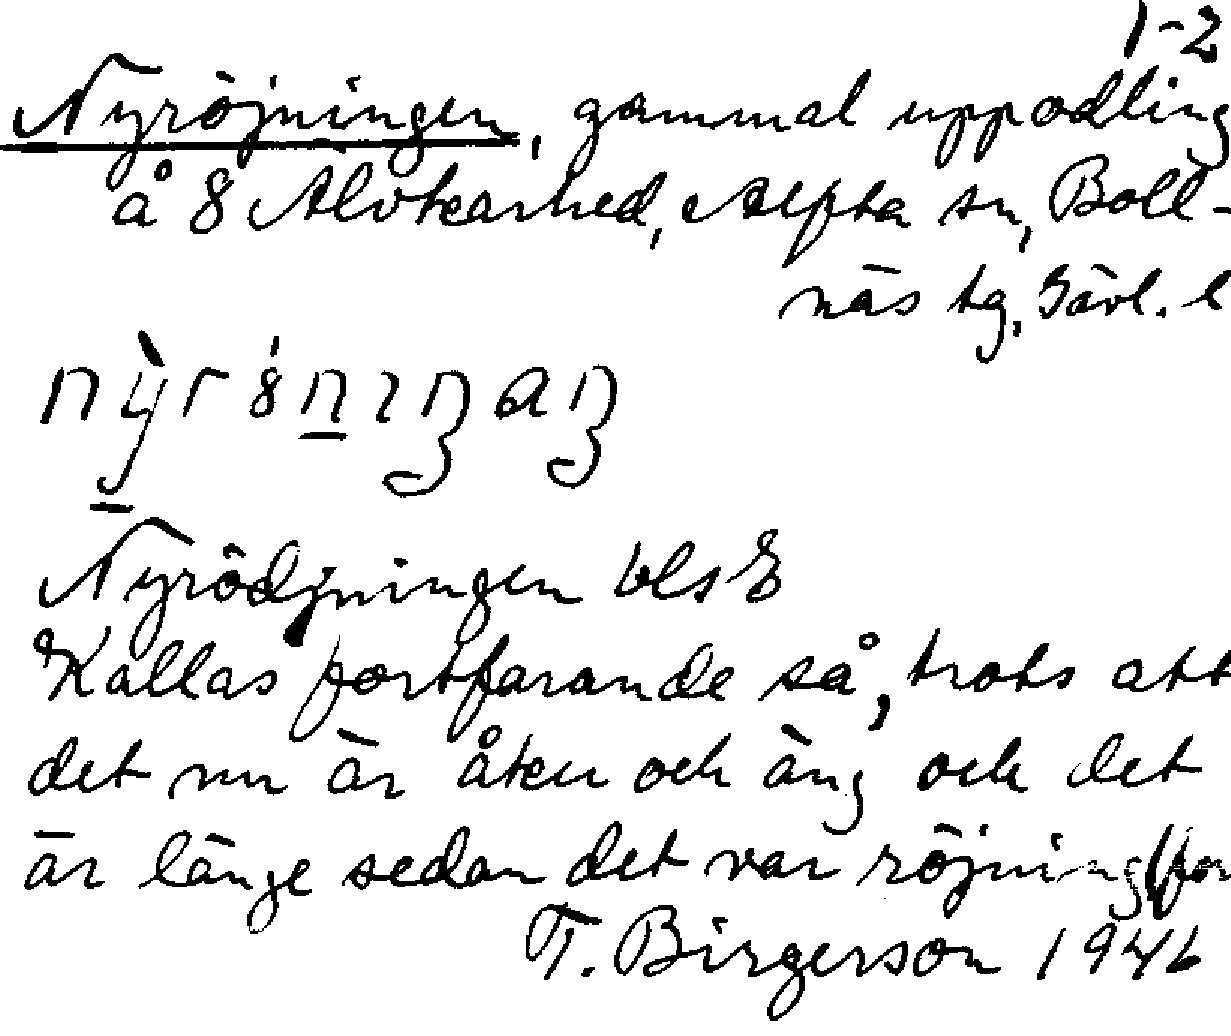 1-2
Nyröjningen, gammal uppodling
å 8 Älvkarhed, Alfta sn, Boll-
näs tg, Gävl. l
Nyrödjningen bls E
Kallas fortfarande så, trots att
det nu är åker och äng och det
är länge sedan det var röjning (for
T. Birgerson 1946